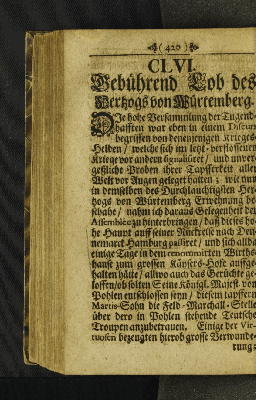 ( 420 )
CLVI.
Gebührend Lob des
Hertzogs von Würtemberg.
DJe hohe Versammlung der Tugend-
hafften war eben in einem Discurs
begriffen von denenjenigen Krieges-
Helden / welche sich im letzt-verflossenen
Kriege vor andern signalisiret / und unver-
geßliche Proben ihrer Tapfferkeit aller
Welt vor Augen geleget hatten; wie nun
in demselben des Durchlauchtigsten Her-
zogs von Würtemberg Erwehnung be-
schahe / nahm ich daraus Gelegenheit der
Assemblée zu hinterbringen / daß dieses ho-
he Haupt auff seiner Rückreise nach Den-
nemarck Hamburg passiret / und sich allda
einige Tage in dem renommirten Wirths-
hause zum grossen Käysers-Hofe auffge-
halten hätte / allwo auch das Gerüchte ge-
loffen / ob solten Seine Königl. Majest. von
Pohlen entschlossen seyn / diesem tapffern
Martis-Sohn die Feld-Marschall-Stelle
über dero in Pohlen stehende Teutsche
Troupen anzubetrauen. Einige der Vir-
tuosen bezeugten hierob grosse Verwunde-
rung;